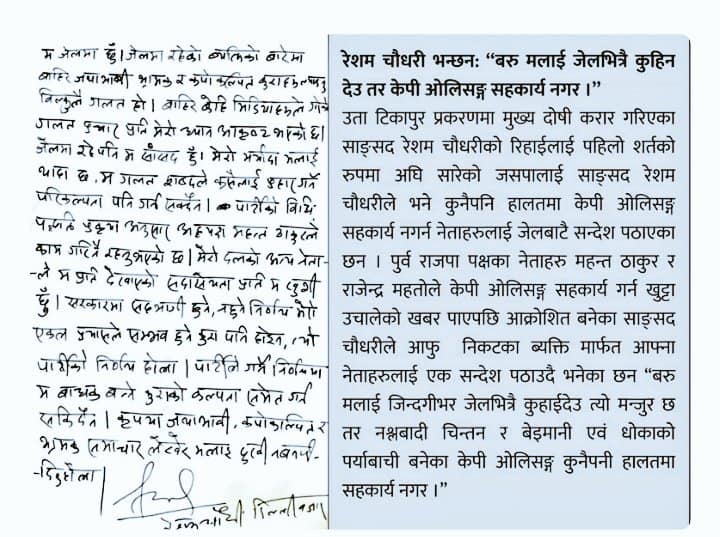 म जेलमा छुँ। जेलमा रहेको व्यक्तिको बारेमा
बाहिर जथाभावी भ्रामक र कपोकल्पित कुराहरू
बिल्कुलै गलत हो। बाहिर केहि मिडियाहरूले
गलत प्रचार प्रति मेरो ध्यान आकृष्ट भएको छ।
जेलमा रहे पनि म साँसद हुँ। मेरो मर्यादा मलाई
थाहा छ, म गलत शब्दले कसैलाई प्रहार गर्ने
परिकल्पना पनि गर्न सक्दैन। पार्टीको विधि
पद्धति अनुसार महन्त ठाकुरले
काम गरिनै रहनुभएको छ। मेरो दलको अन्य नेता-
ले म प्रति देखाएको सदासयता प्रति म खुशी
छुँ। सरकारमा सहभागी हुने, नहुने निर्णय मेरो
एकल प्रयासले सम्भव हुने कुरा पनि होइन, त्यो
पार्टीको निर्णय होला। पार्टीले गर्ने निर्णयमा
म बाधक बन्ने कुराको कल्पना समेत गर्न
सकिदैन। कृपया जथाभावी, कपोकल्पित र
भ्रामक समाचार लेखेर मलाई दुःखी नबनाई-
-दिनुहोला।
रेशम चौधरी डिल्लीबजार
रेशम चौधरी भन्छन: “बरु मलाई जेलभित्रै कुहिन
देउ तर केपी ओलिसङ्ग सहकार्य नगर ।”
उता टिकापुर प्रकरणमा मुख्य दोषी करार गरिएका
साङ्सद रेशम चौधरीको रिहाईलाई पहिलो शर्तको
रुपमा अघि सारेको जसपालाई साङ्सद रेशम
चौधरीले भने कुनैपनि हालतमा केपी ओलिसङ्ग
सहकार्य नगर्न नेताहरुलाई जेलबाटै सन्देश पठाएका
छन । पुर्व राजपा पक्षका नेताहरु महन्त ठाकुर र
राजेन्द्र महतोले केपी ओलिसङ्ग सहकार्य गर्न खुट्टा
उचालेको खबर पाएपछि आक्रोशित बनेका साङ्सद
चौधरीले आफु निकटका ब्यक्ति मार्फत आफ्ना
नेताहरुलाई एक सन्देश पठाउदै भनेका छन “बरु
मलाई जिन्दगीभर जेलभित्रै कुहाईदेउ त्यो मन्जुर छ
तर नश्लबादी चिन्तन र बेइमानी एवं धोकाको
पर्याबाची बनेका केपी ओलिसङ्ग कुनैपनी हालतमा
सहकार्य नगर ।”